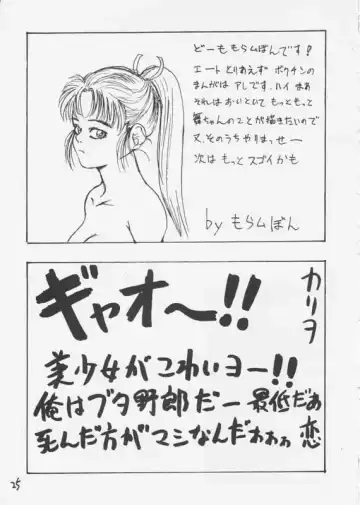 どーももらムぽんです!
エート とりあえず ボクチンの
まんがは アレです。ハイ まぁ
それは おいといて もっともっと
舞ちゃんのことが描きたいので
又、そのうちやりまっせー
次は もっと スゴイかも
by もらムぽん
ギャオ〜!!
カリヲ
美少女がこわいヨー!!
俺はブタ野郎だー 最低だぁ
死んだ方がマシなんだわぁぁ 恋
25